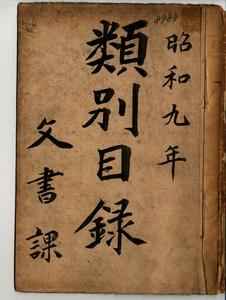 8988
昭和九年
類別目録
文書課